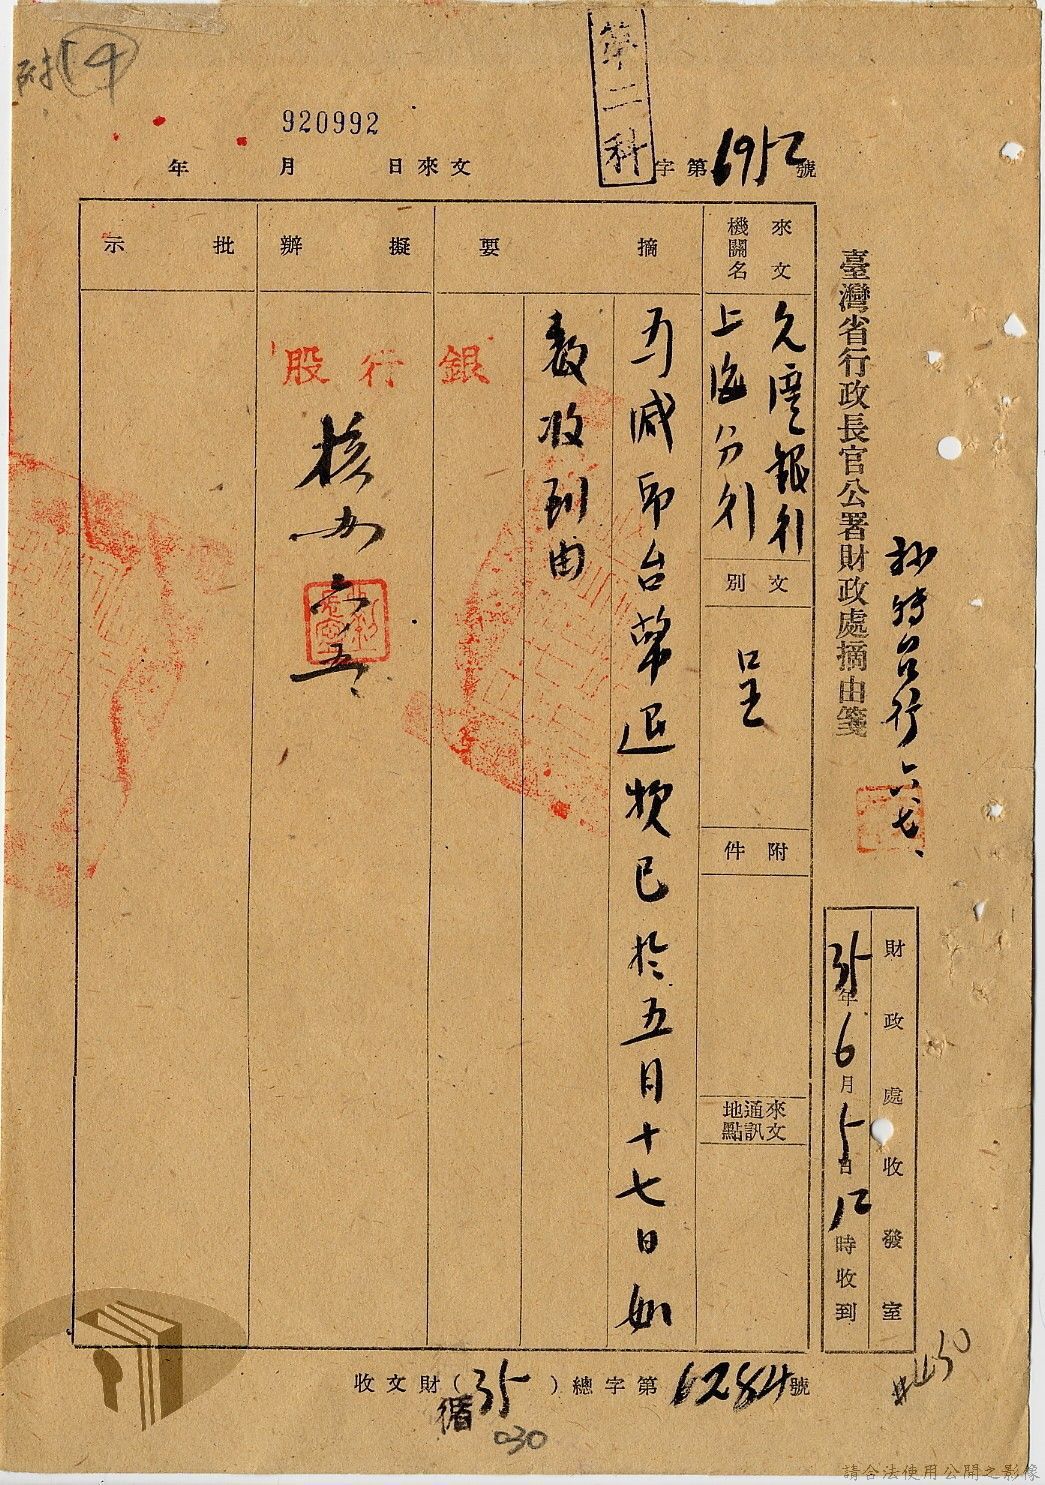 附14
920992
第二科
字第6952號
年 月 日來文
臺灣省行政長官公署財政處摘由箋
抄特台行 六.七、
財政處收發室
35年6月5日12時收到
來文機關名
上海分行
文別
呈
附件
來文通訊地點
摘要
減印台幣退款已於五月十七日如
數收到由
擬辦
銀行股
六.五、
批示
收文財(35)總字第6284號
循
030
#450
請合法使用公開之影像